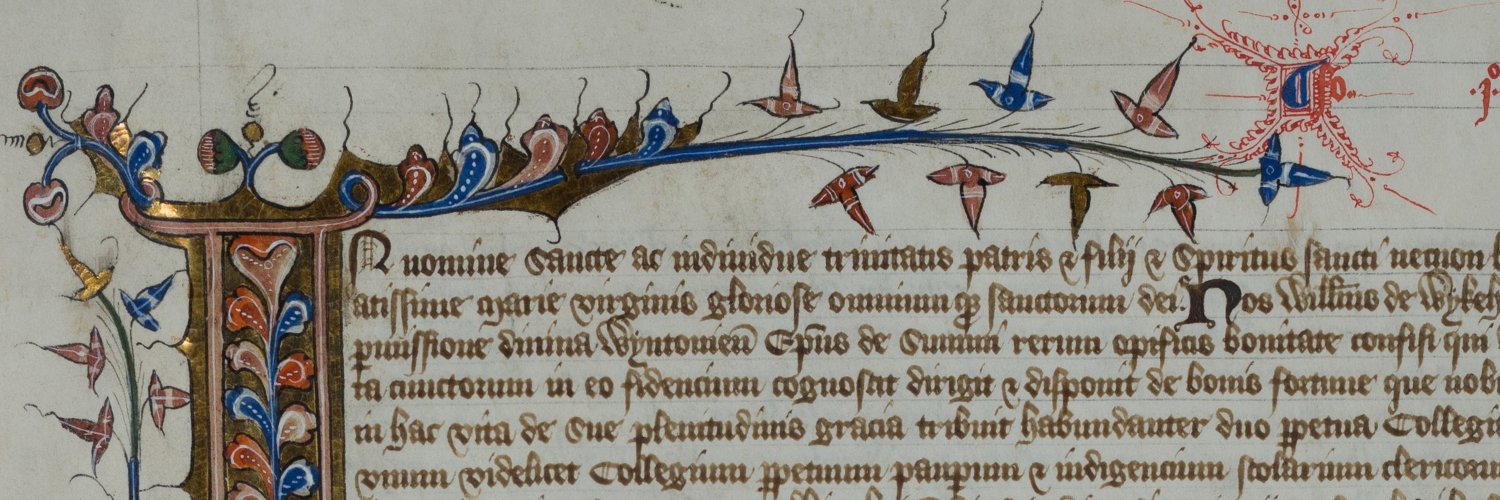 In nomine Sancte ac individue trinitatis patris & filij & Spiritus sancti necnon
atissime Marie virginis gloriose omnium qȝ sanctorum dei Nos Willm̄us de Wykeh
pmissione divina Wyntonien̄ Ep̄us de Summi rerum opificis bonitate confisi qui
ta cunctorum in eo fidencium cognoscit dirigit & disponit de bonis fortune que nob
in hac vita de sue plenitudinis gracia tribuit habundanter duo ppetua Collegi
unum videlicet Collegium ppetuum paupum & indigencium scolarium clericorum